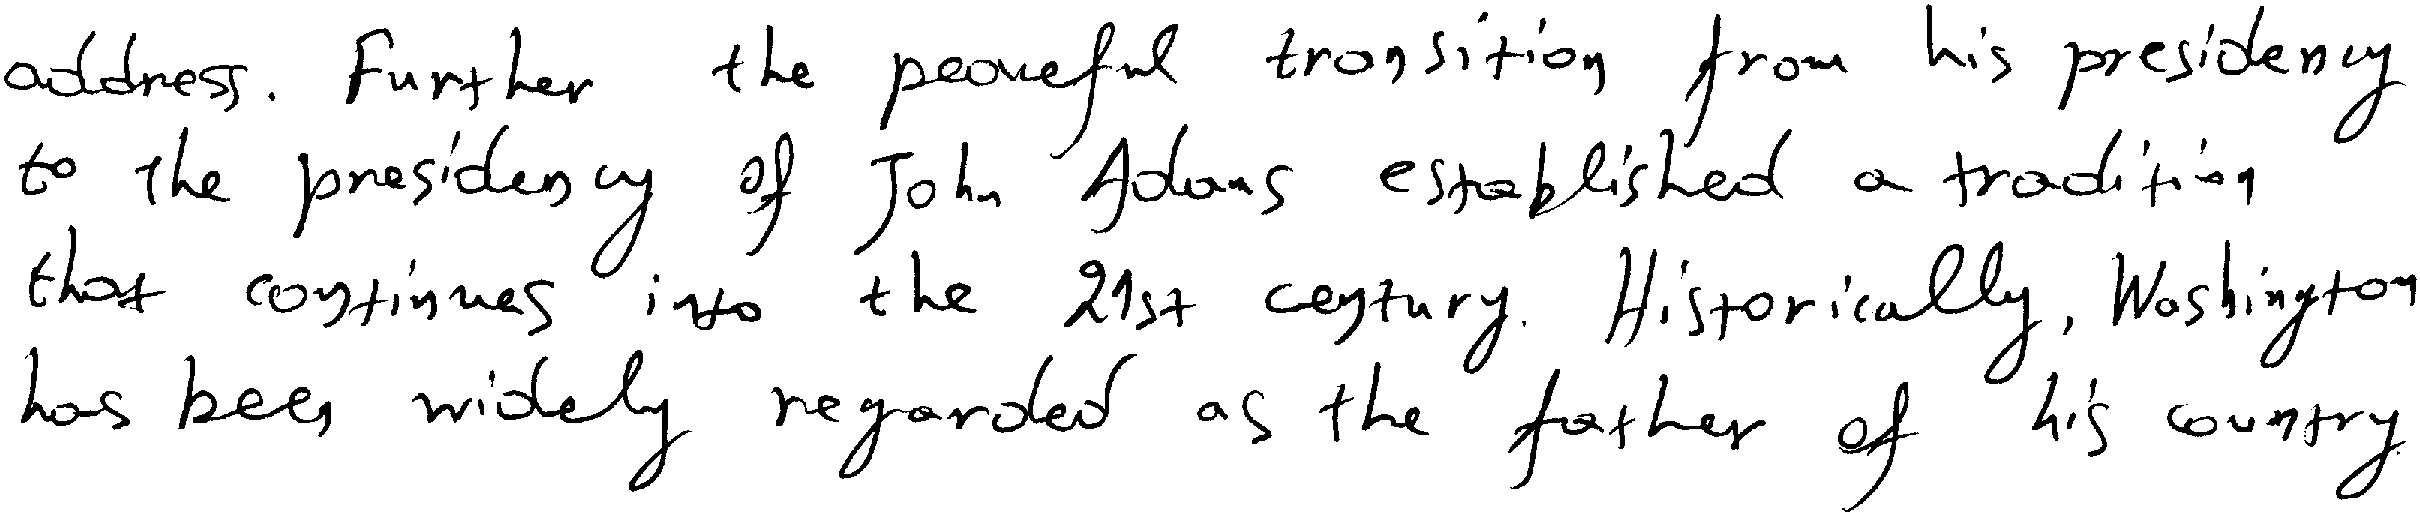 address. Further the peaceful transition from his presidency
to the presidency of John Adams established a tradition
that continues into the 21st century. Historically, Washington
has been widely regarded as the father of his country.